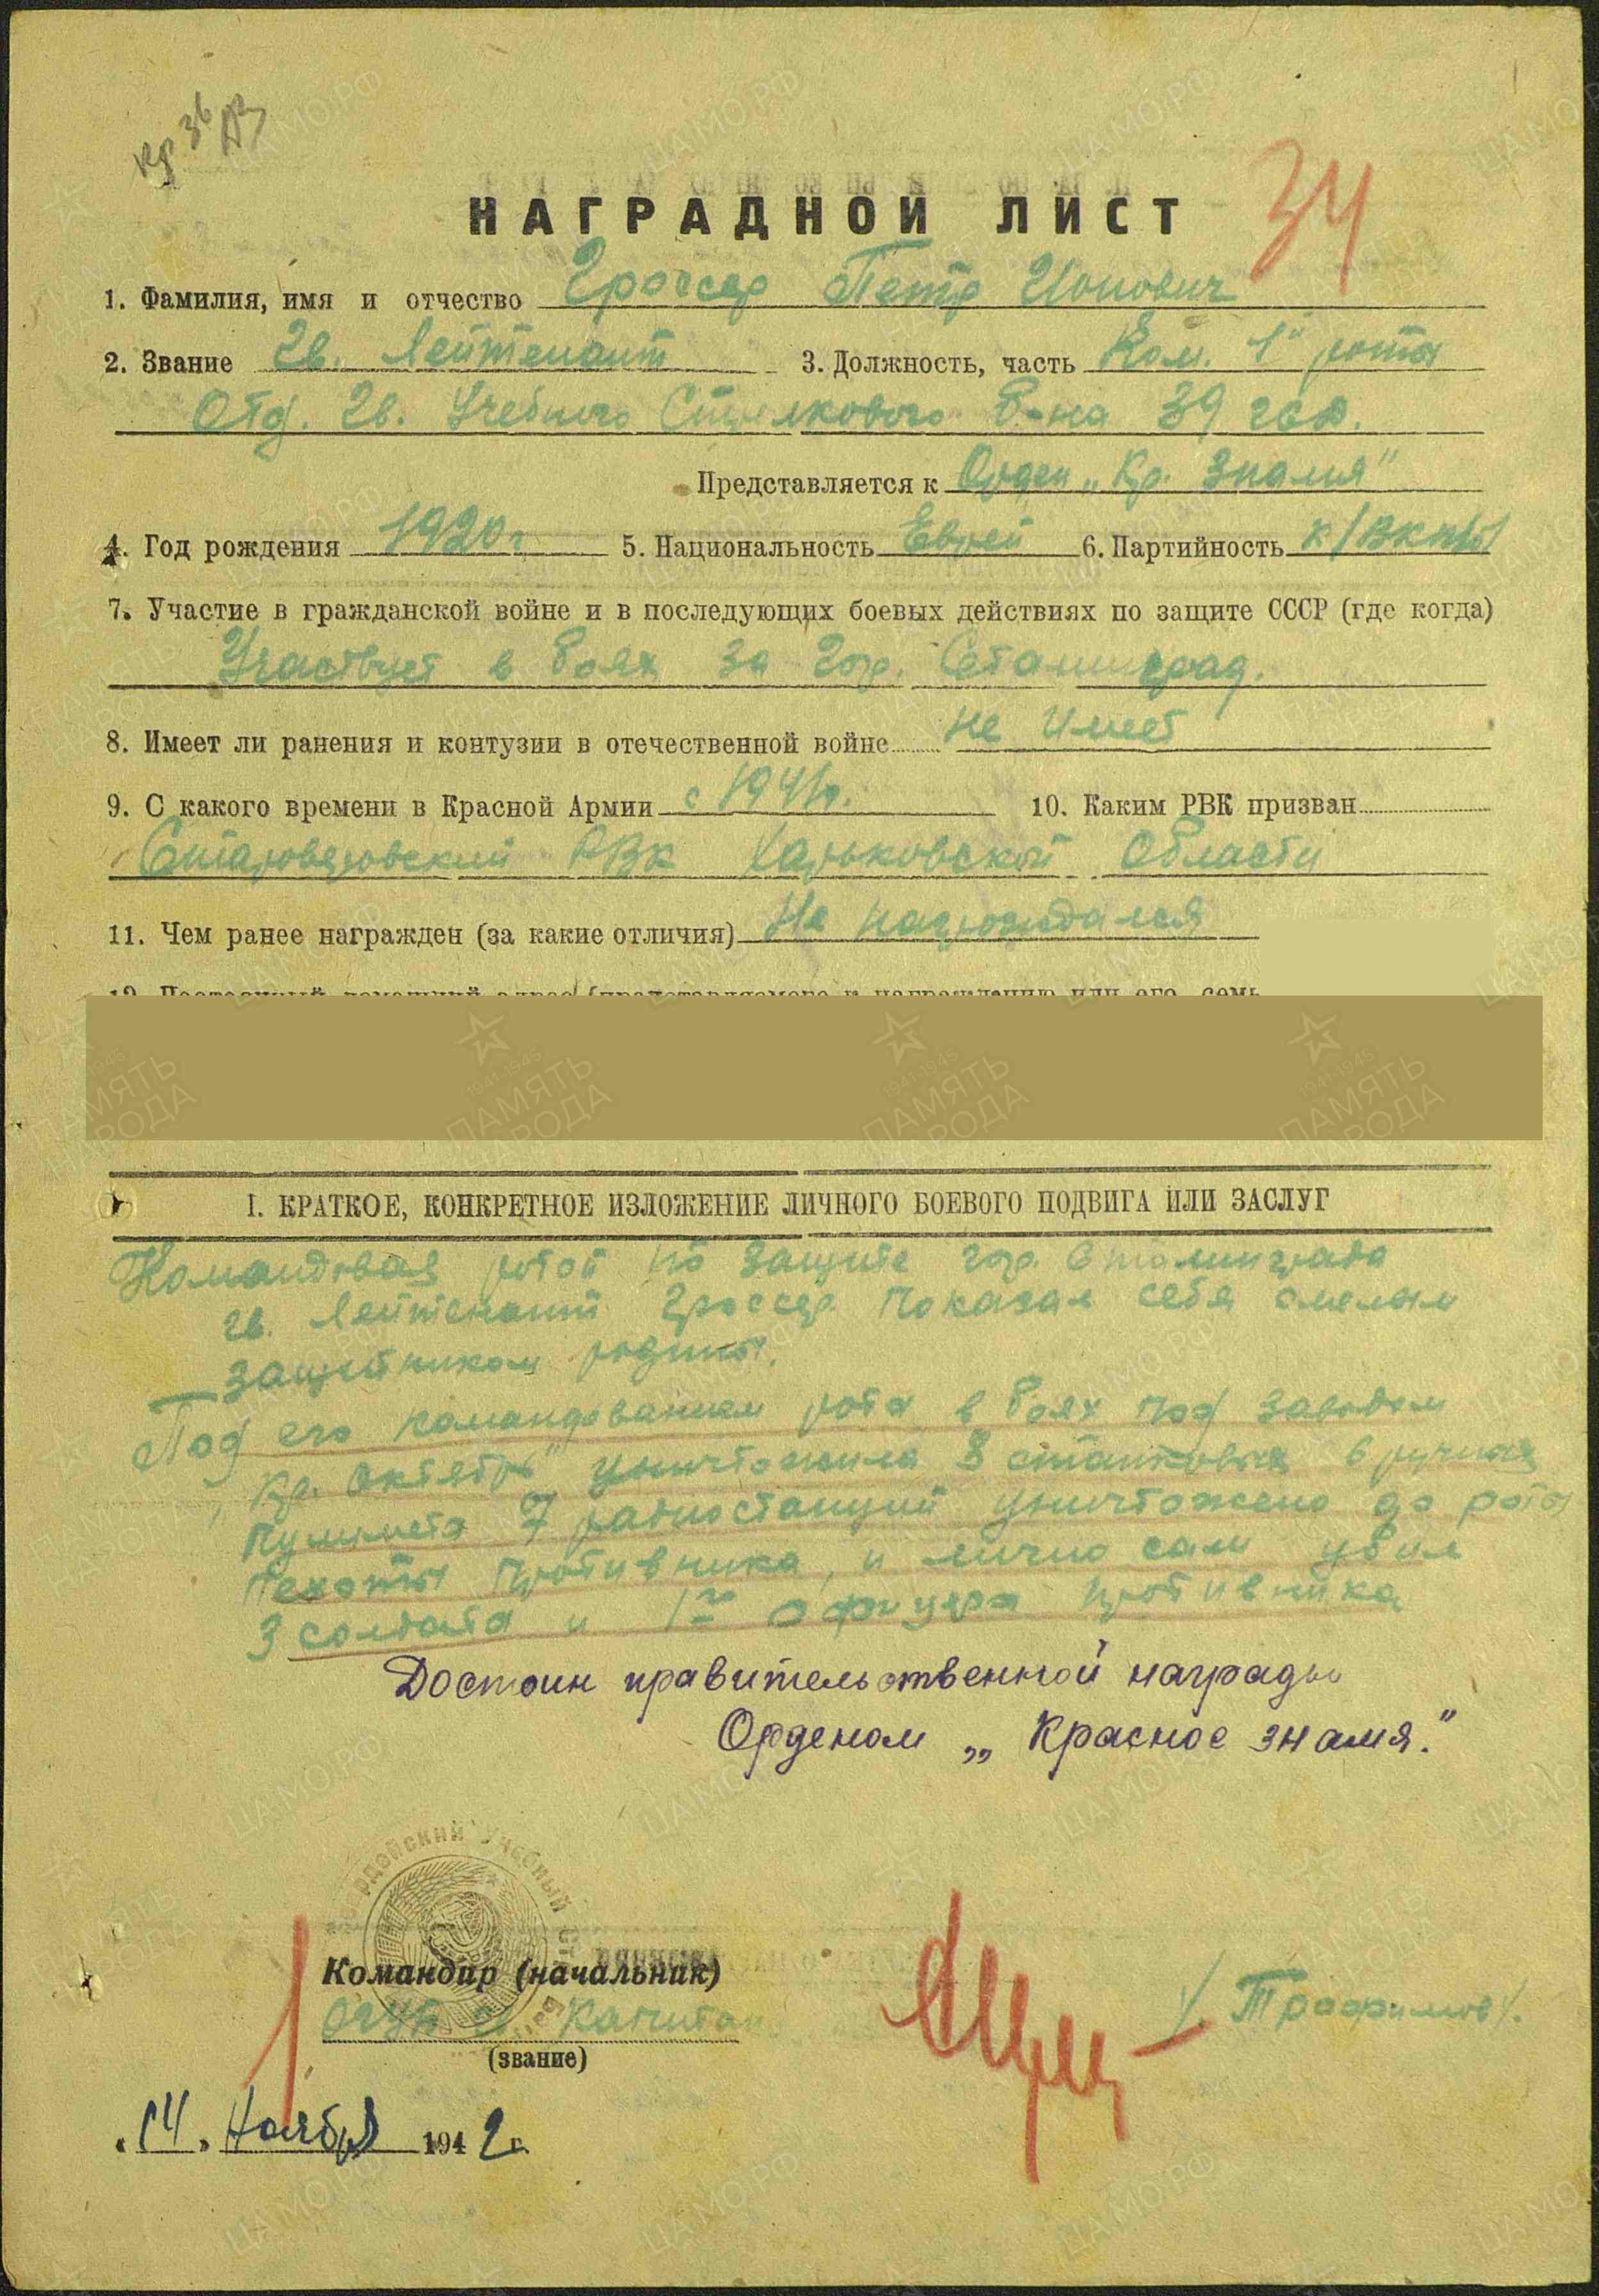 Кр 36
НАГРАДНОЙ ЛИСТ
34
1. Фамилия, имя и отчество Гроссер Петр Ионович
2. Звание Гв. Лейтенант 3. Должность, часть Ком. 1й роты
Отд. Гв. Учебного Стрелкового б-на 39 гсд.
Представляется к Орден „Кр. Знамя"
4. Год рождения 1920г 5. Национальность Еврей 6. Партийность к/ВКП(б)
7. Участие в гражданской войне и в последующих боевых действиях по защите СССР (где когда)
Участвует в боях за гор. Сталинград.
8. Имеет ли ранения и контузии в отечественной войне не имеет
9. С какого времени в Красной Армии с 1941г. 10. Каким РВК призван
РВК Харьковской Области
11. Чем ранее награжден (за какие отличия) Не награждался
12. Постоянный домашний адрес (представляемого к награждению или его семь
I. КРАТКОЕ, КОНКРЕТНОЕ ИЗЛОЖЕНИЕ ЛИЧНОГО БОЕВОГО ПОДВИГА ИЛИ ЗАСЛУГ
Командовая ротой по защите гор. Сталинграда
гв. Лейтенант Гроссер показал себя смелым
защитником родины.
Под его командованием рота в боях под заводом
„Кр. Октябрь" уничтожила 8 станковых 6 ручных
пулимета 7 радиостанций уничтожено до роты
пехоты противника, и лично сам убил
3 солдата и 1го офицера противника
Достоин правительственной награды
Орденом „Красное знамя."
Командир (начальник)
Капитан
/Трофимов/.
(звание)
„14" Ноября 1942г.
ЦАМО.РФ
1941-1945
ПАМЯТЬ
НАРОДА